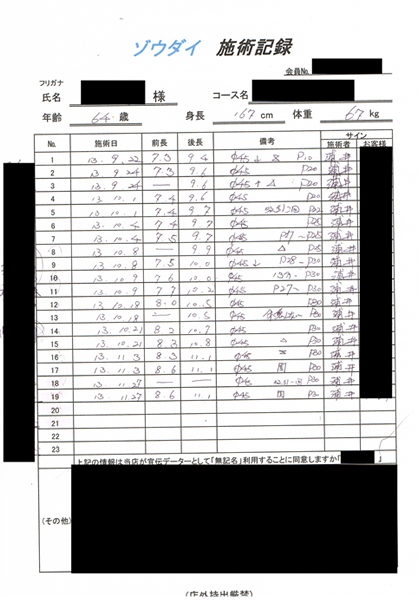 ゾウダイ 施術記録
会員No.
フリガナ
氏名 様 コース名
年齢 64 歳 身長 167 cm 体重 67 kg
No. 施術日 前長 後長 備考 サイン
施術者 お客様
1 13.9.22 7.3 9.4 φ45 P10
2 13.9.24 7.3 9.6 φ45 P20
3 13.9.24 — 9.6 φ45 △ P20
4 13.10.1 7.4 9.6 φ45 P20
5 13.10.1 7.4 9.7 φ45 P22
6 13.10.4 7.4 9.7 φ45 P25
7 13.10.4 7.5 9.7 φ45 P17~P25
8 13.10.8 — 9.9 φ45 △ P25
9 13.10.8 7.5 10.0 φ45↓ P28~P30
10 13.10.9 7.6 10.0 φ45 P30
11 13.10.9 7.7 10.2 φ45 P27~P30
12 13.10.18 8.0 10.5 φ45 P30
13 13.10.18 — 10.5 φ45 P30
14 13.10.21 8.2 10.7 φ45 P30
15 13.10.21 8.3 10.8 φ45 △ P30
16 13.11.3 8.3 11.1 φ45 P30
17 13.11.3 8.6 11.1 φ45 P30
18 13.11.27 — — φ45 P30
19 13.11.27 8.6 11.1 φ45 P3
20
21
22
23
上記の情報は当店が宣伝データーとして「無記名」利用することに同意しますか「 」
(その他)
(店外持出厳禁)